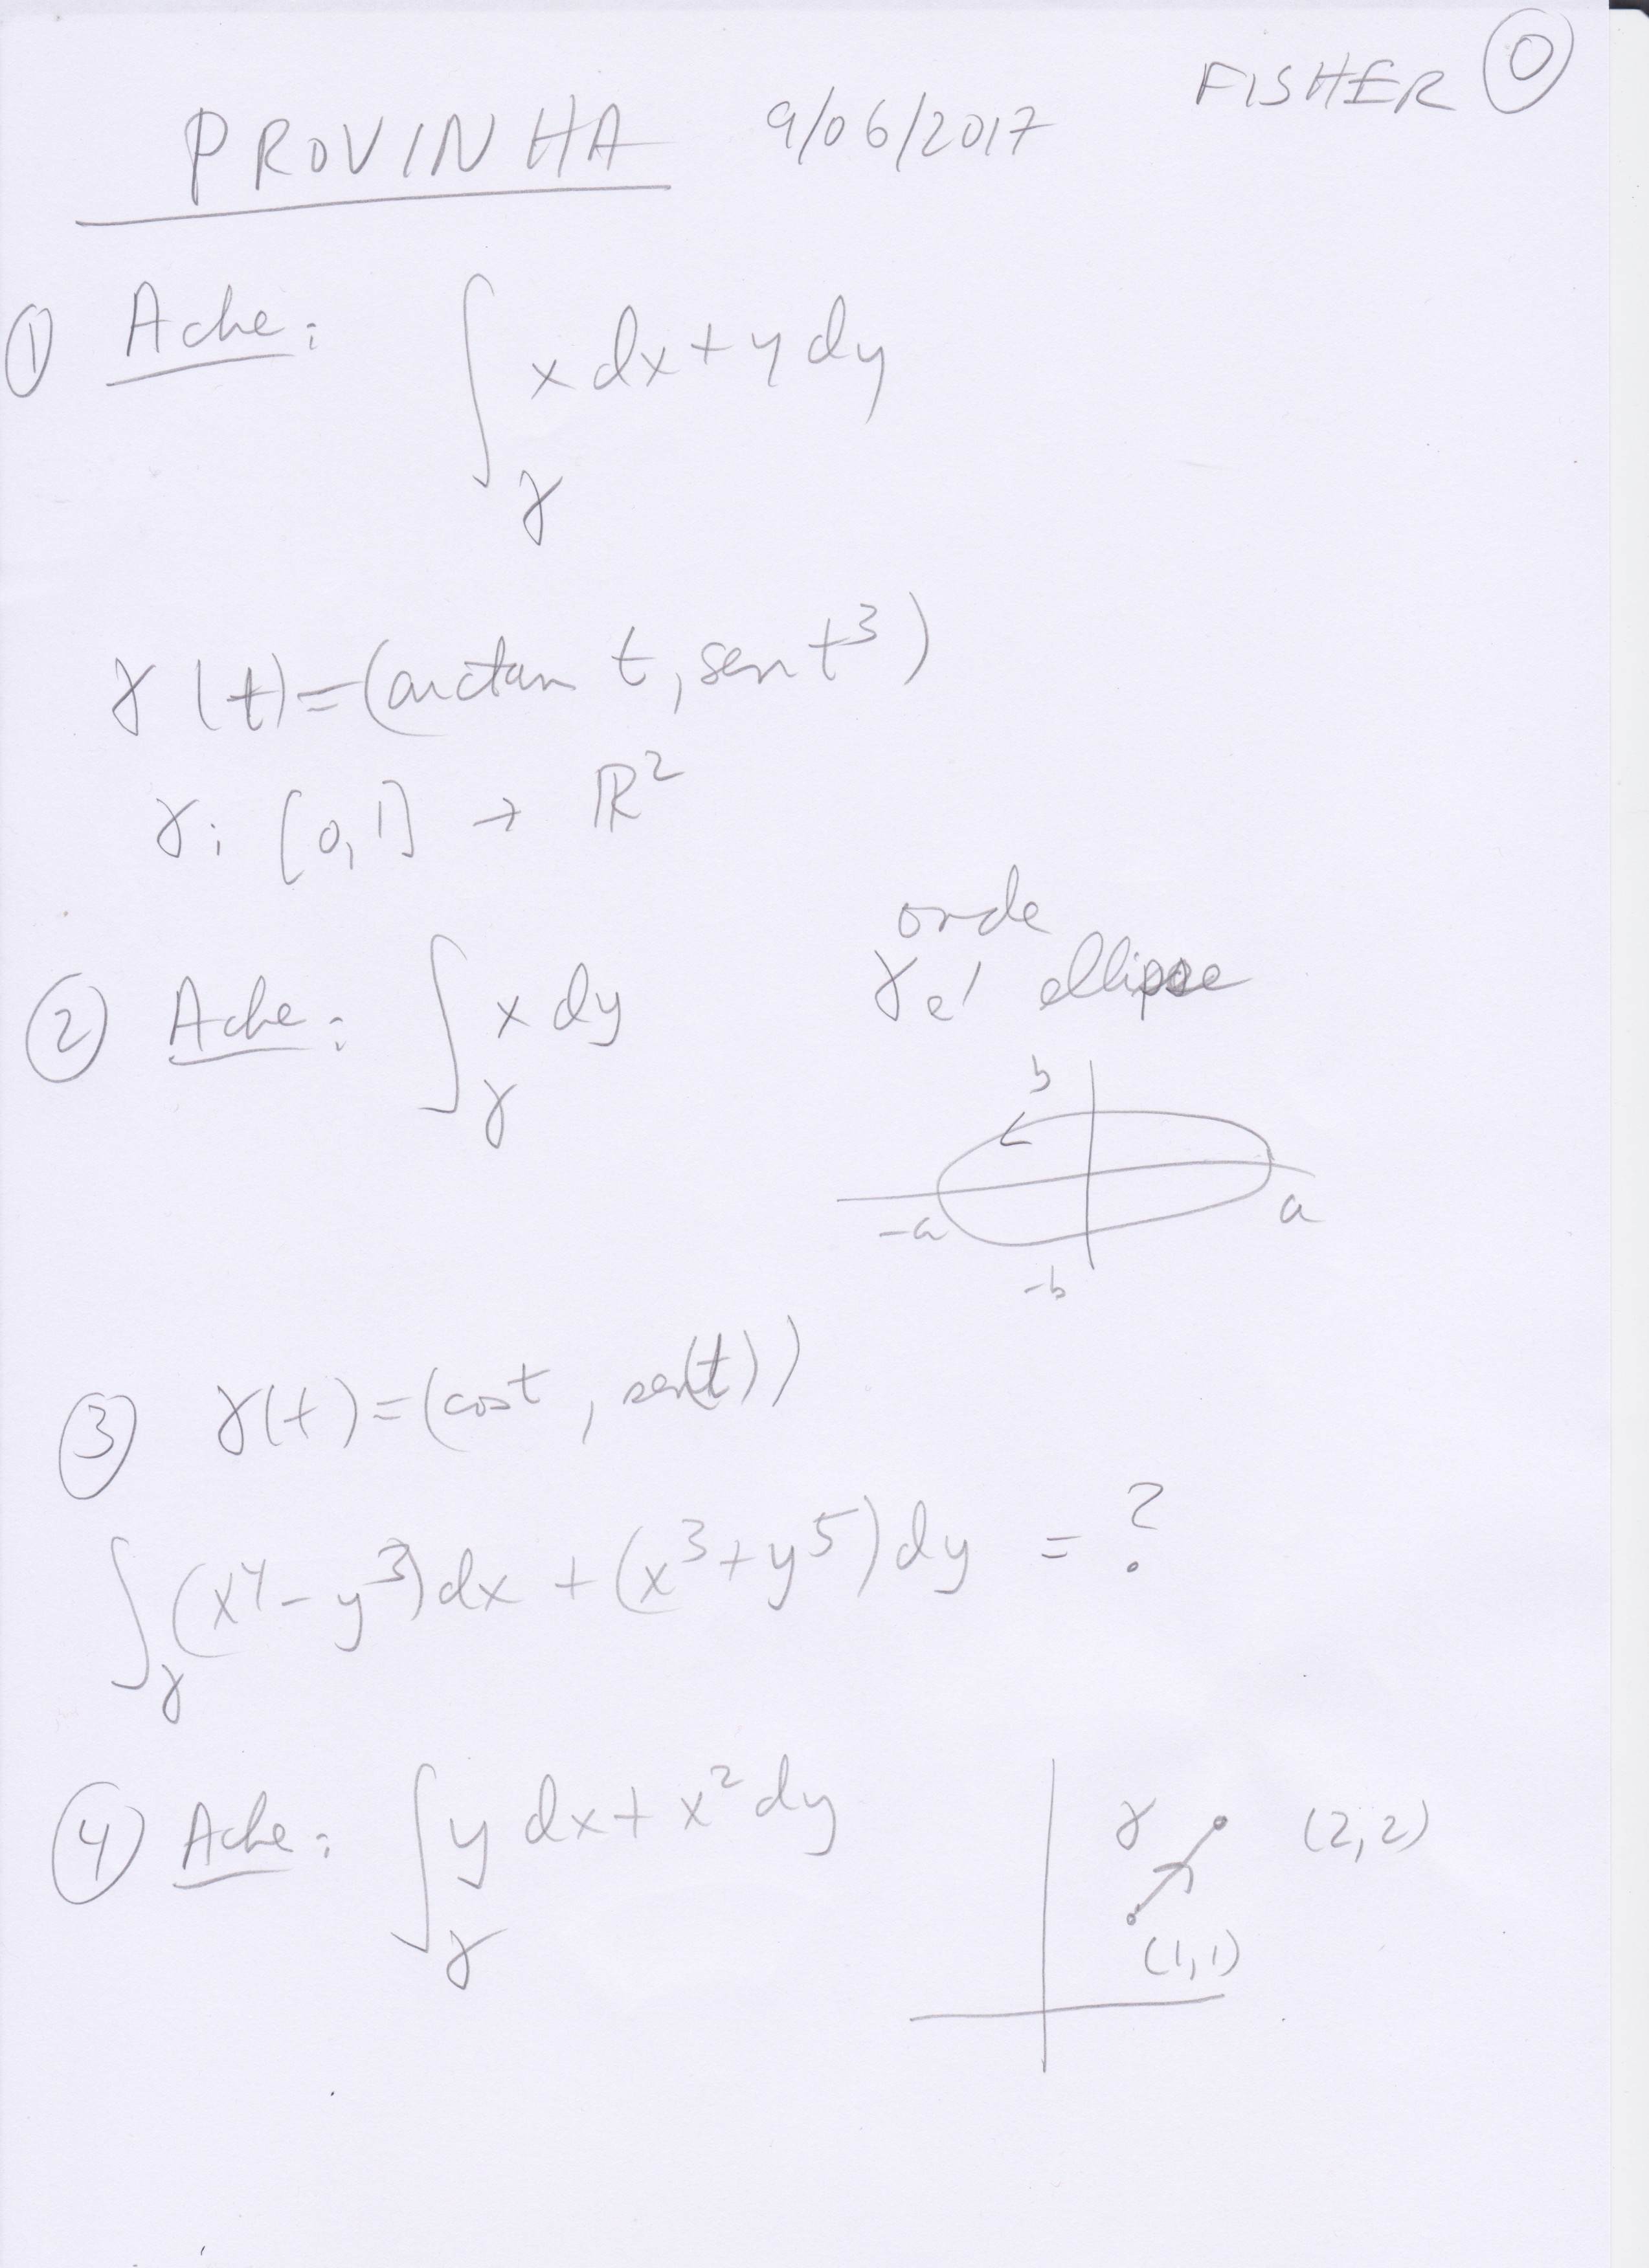 FISHER 0
PROVINHA 9/06/2017
① Ache: ∫_γ x dx + y dy
γ(t)=(arctan t, sen t³)
γ: [0,1] → ℝ²
② Ache: ∫_γ x dy
onde
γ e' ellipse
b
-a a
-b
③ γ(t)=(cos t, sen(t))
∫_γ (x⁴-y³)dx + (x³+y⁵)dy = ?
④ Ache: ∫_γ y dx + x² dy
γ (2,2)
(1,1)